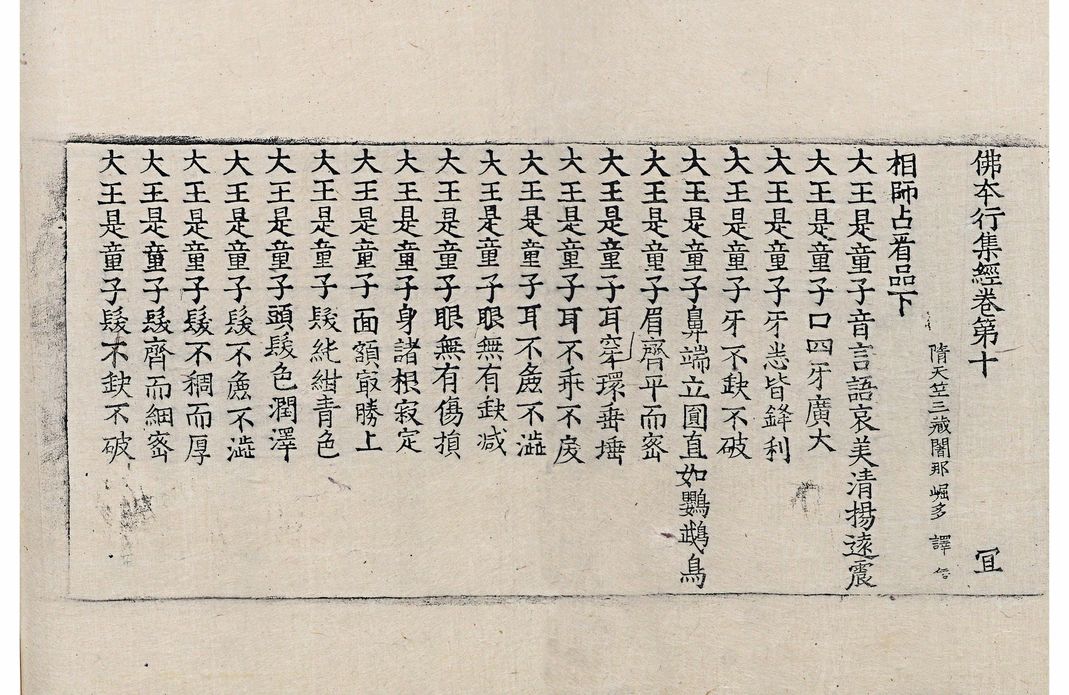 佛本行集經卷第十 冝
隋天竺三藏闍那崛多 譯
相師占㸔品下
大王是童子音言語哀美清揚遠震
大王是童子口四牙廣大
大王是童子牙悉皆鋒利
大王是童子牙不缺不破
大王是童子鼻端立圓直如鸚鵡鳥
大王是童子眉齊平而宻
大王是童子耳穿環垂埵
大王是童子耳不乖不戾
大王是童子耳不麁不澁
大王是童子眼無有缺减
大王是童子眼無有傷損
大王是童子身諸根寂定
大王是童子面額㝡勝上
大王是童子髮純紺青色
大王是童子頭髮色潤澤
大王是童子髮不麁不澁
大王是童子髮不稠而厚
大王是童子髮齊而細宻
大王是童子髮不缺不破